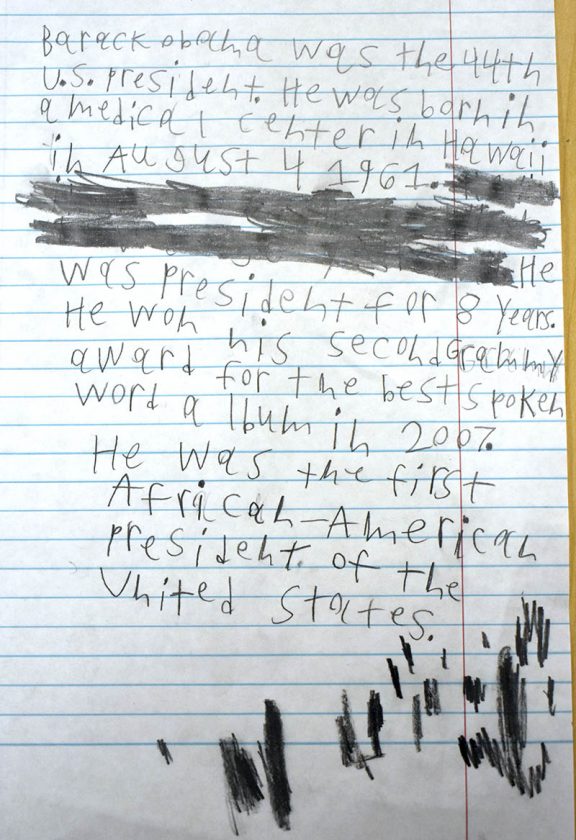 Barack obama was the 44th
U.S. president. He was born in
a medical center in Hawaii
in August 4 1961.
He
was president for 8 years.
He won his second Grammy
award for the best spoken
word album in 2007.
He was the first
African-American
president of the
United States.